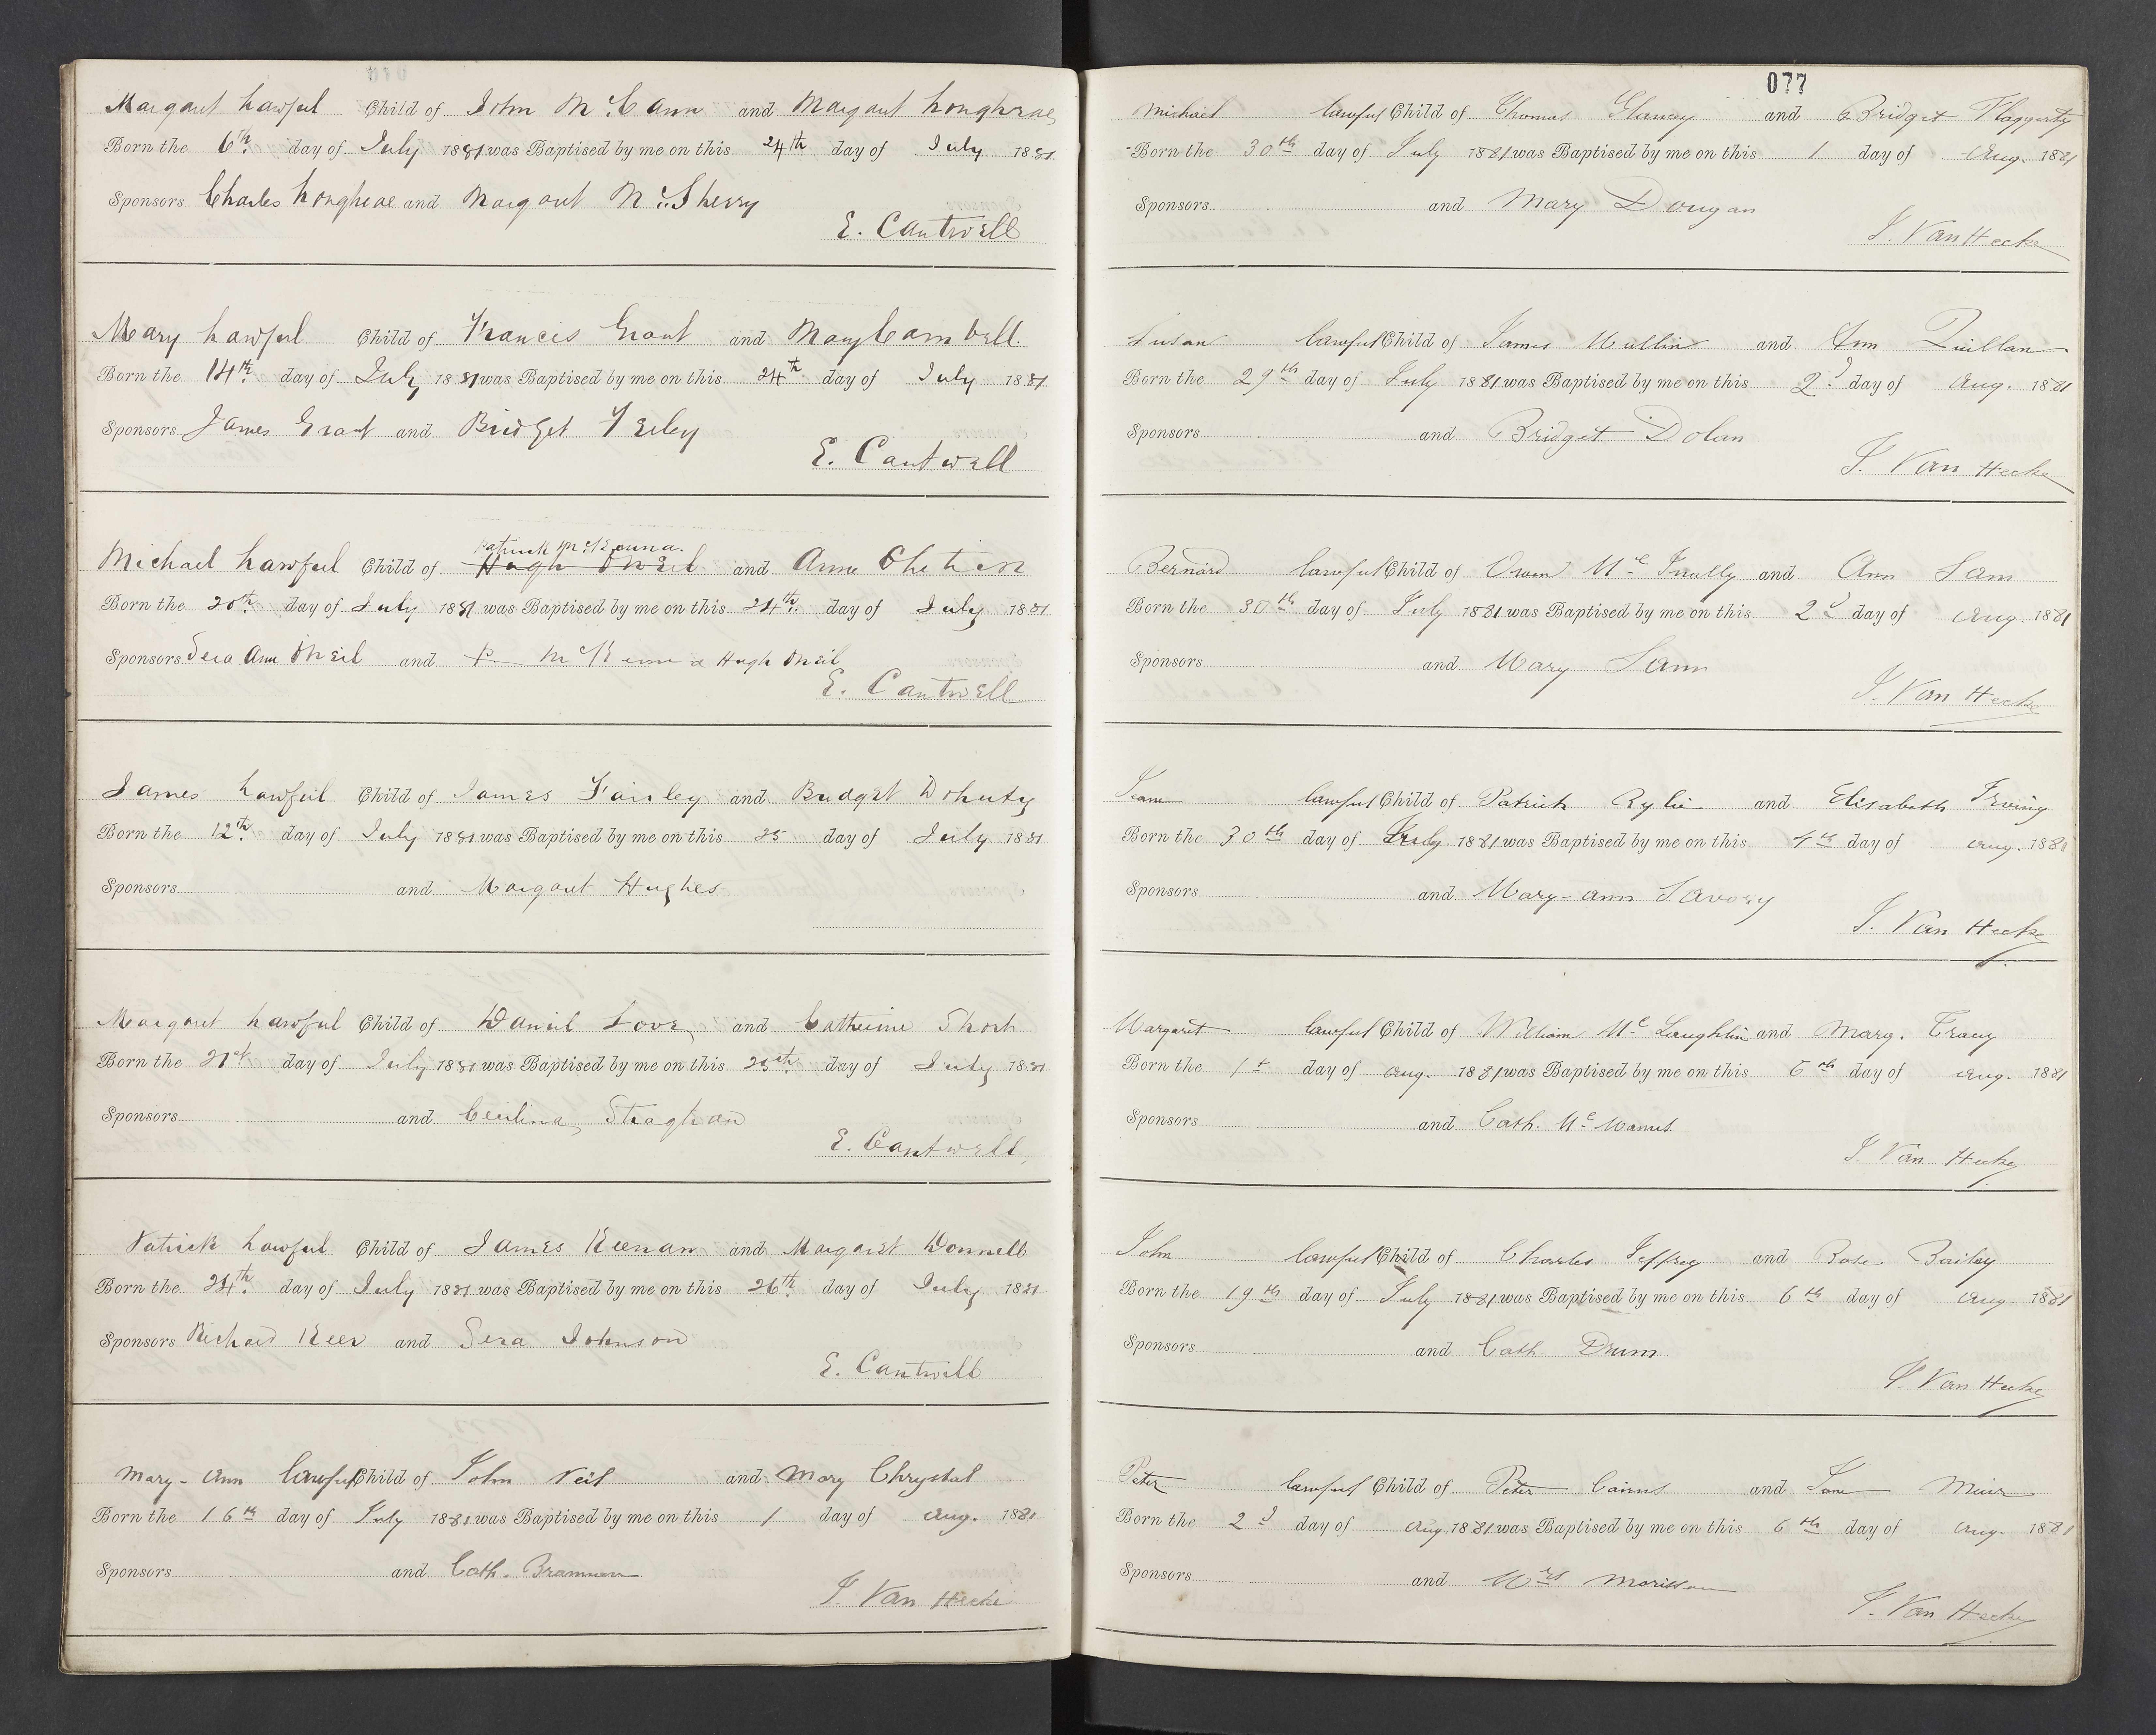 Margaret Lawful Child of John McCann and Margaret Loughrae
Born the 6th day of July 1881 was Baptised by me on this 24th day of July 1881
Sponsors Charles Loughrae and Margaret McSherry
E. Cantwell
Mary Lawful Child of Francis Grant and Mary Cambell
Born the 14th day of July 1881 was Baptised by me on this 24th day of July 1881
Sponsors James Grant and Bridget
E. Cantwell
Patrick McKenna.
Michael Lawful Child of Hugh ONeil and Anne
Born the 20th day of July 1881 was Baptised by me on this 24th day of July 1881
Sponsors Sera Ann ONeil and P. McKenna Hugh ONeil
E. Cantwell
James Lawful Child of James Fairley and Bridget Dohuty
Born the 12th day of July 1881 was Baptised by me on this 25 day of July 1881
Sponsors and Margaret Hughes
Margaret Lawful Child of Daniel Love and Catherine Short
Born the 21st day of July 1881 was Baptised by me on this 25th day of July 1881
Sponsors and Straghan
E. Cantwell
Patrick Lawful Child of James Keenan and Margaret Donnell
Born the 24th day of July 1881 was Baptised by me on this 26th day of July 1881
Sponsors Richard Keer and Sera Johnson
E. Cantwell
Mary-Ann lawful Child of John Neil and Mary Chrystal
Born the 16th day of July 1881 was Baptised by me on this 1 day of Aug. 1881
Sponsors and Cath. Brannan
J. Van Hecke
077
Michael lawful Child of Thomas Glancy and Bridget Flaggerty
Born the 30th day of July 1881 was Baptised by me on this 1 day of Aug. 1881
Sponsors and Mary Dougan
J. Van Hecke
Susan lawful Child of James Mullin and Ann Quillan
Born the 29th day of July 1881 was Baptised by me on this 2d day of Aug. 1881
Sponsors and Bridget Dolan
J. Van Hecke
Bernard lawful Child of Owen Mc Inally and Ann Lam
Born the 30th day of July 1881 was Baptised by me on this 2d day of Aug. 1881
Sponsors and Mary Lam
J. Van Hecke
Jean lawful Child of Patrick Rylie and Elisabeth Irving
Born the 30th day of July 1881 was Baptised by me on this 4th day of Aug. 1881
Sponsors and Mary-Ann Savory
J. Van Hecke
Margaret lawful Child of William Mc Laughlin and Mary. Tracy
Born the 1st day of Aug. 1881 was Baptised by me on this 6th day of Aug. 1881
Sponsors and Cath. Mc Manus
J. Van Hecke
John lawful Child of Charles Jeffrey and Rose Bailey
Born the 19th day of July 1881 was Baptised by me on this 6th day of Aug. 1881
Sponsors and Cath. Drum
J. Van Hecke
Peter lawful Child of Peter Cairns and Jane Muir
Born the 2d day of Aug. 1881 was Baptised by me on this 6th day of Aug. 1881
Sponsors and Mrs Morisson
J. Van Hecke